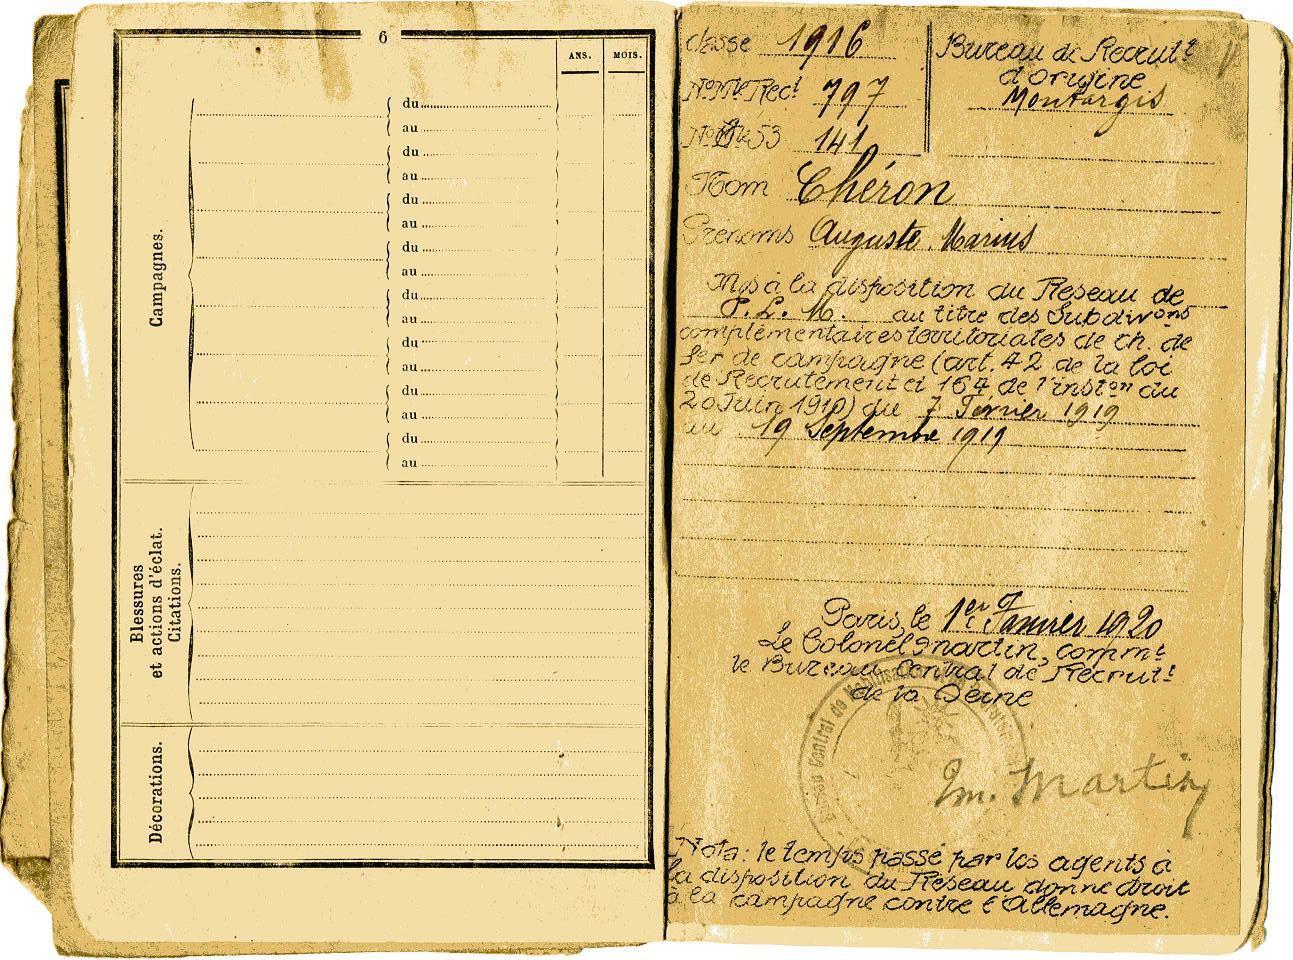 6
ANS.
MOIS.
Campagnes.
du
au
du
au
du
au
du
au
du
au
du
au
du
au
du
au
Blessures
et actions d'éclat.
Citations.
Décorations.
Classe 1916
No Mle Rect 797
No 53 141
Bureau de Recrutt
d'origine
Montargis
Nom Chéron
Prénoms Auguste Marius
Mis à la disposition du Réseau de
P. L. M. au titre des Subdivons
complémentaires territoriales de ch. de
fer de campagne (art. 42 de la loi
de Recrutement et 164 de l'inston du
20 Juin 1910) du 7 Février 1919
au 19 Septembre 1919
Paris, le 1er Janvier 1920
Le Colonel Martin, commt
le Bureau Central de Recrutt
de la Seine
Bureau Central de Mobilisation
Em. Martin
Nota: le temps passé par les agents à
la disposition du Réseau donne droit
à la campagne contre l'Allemagne.